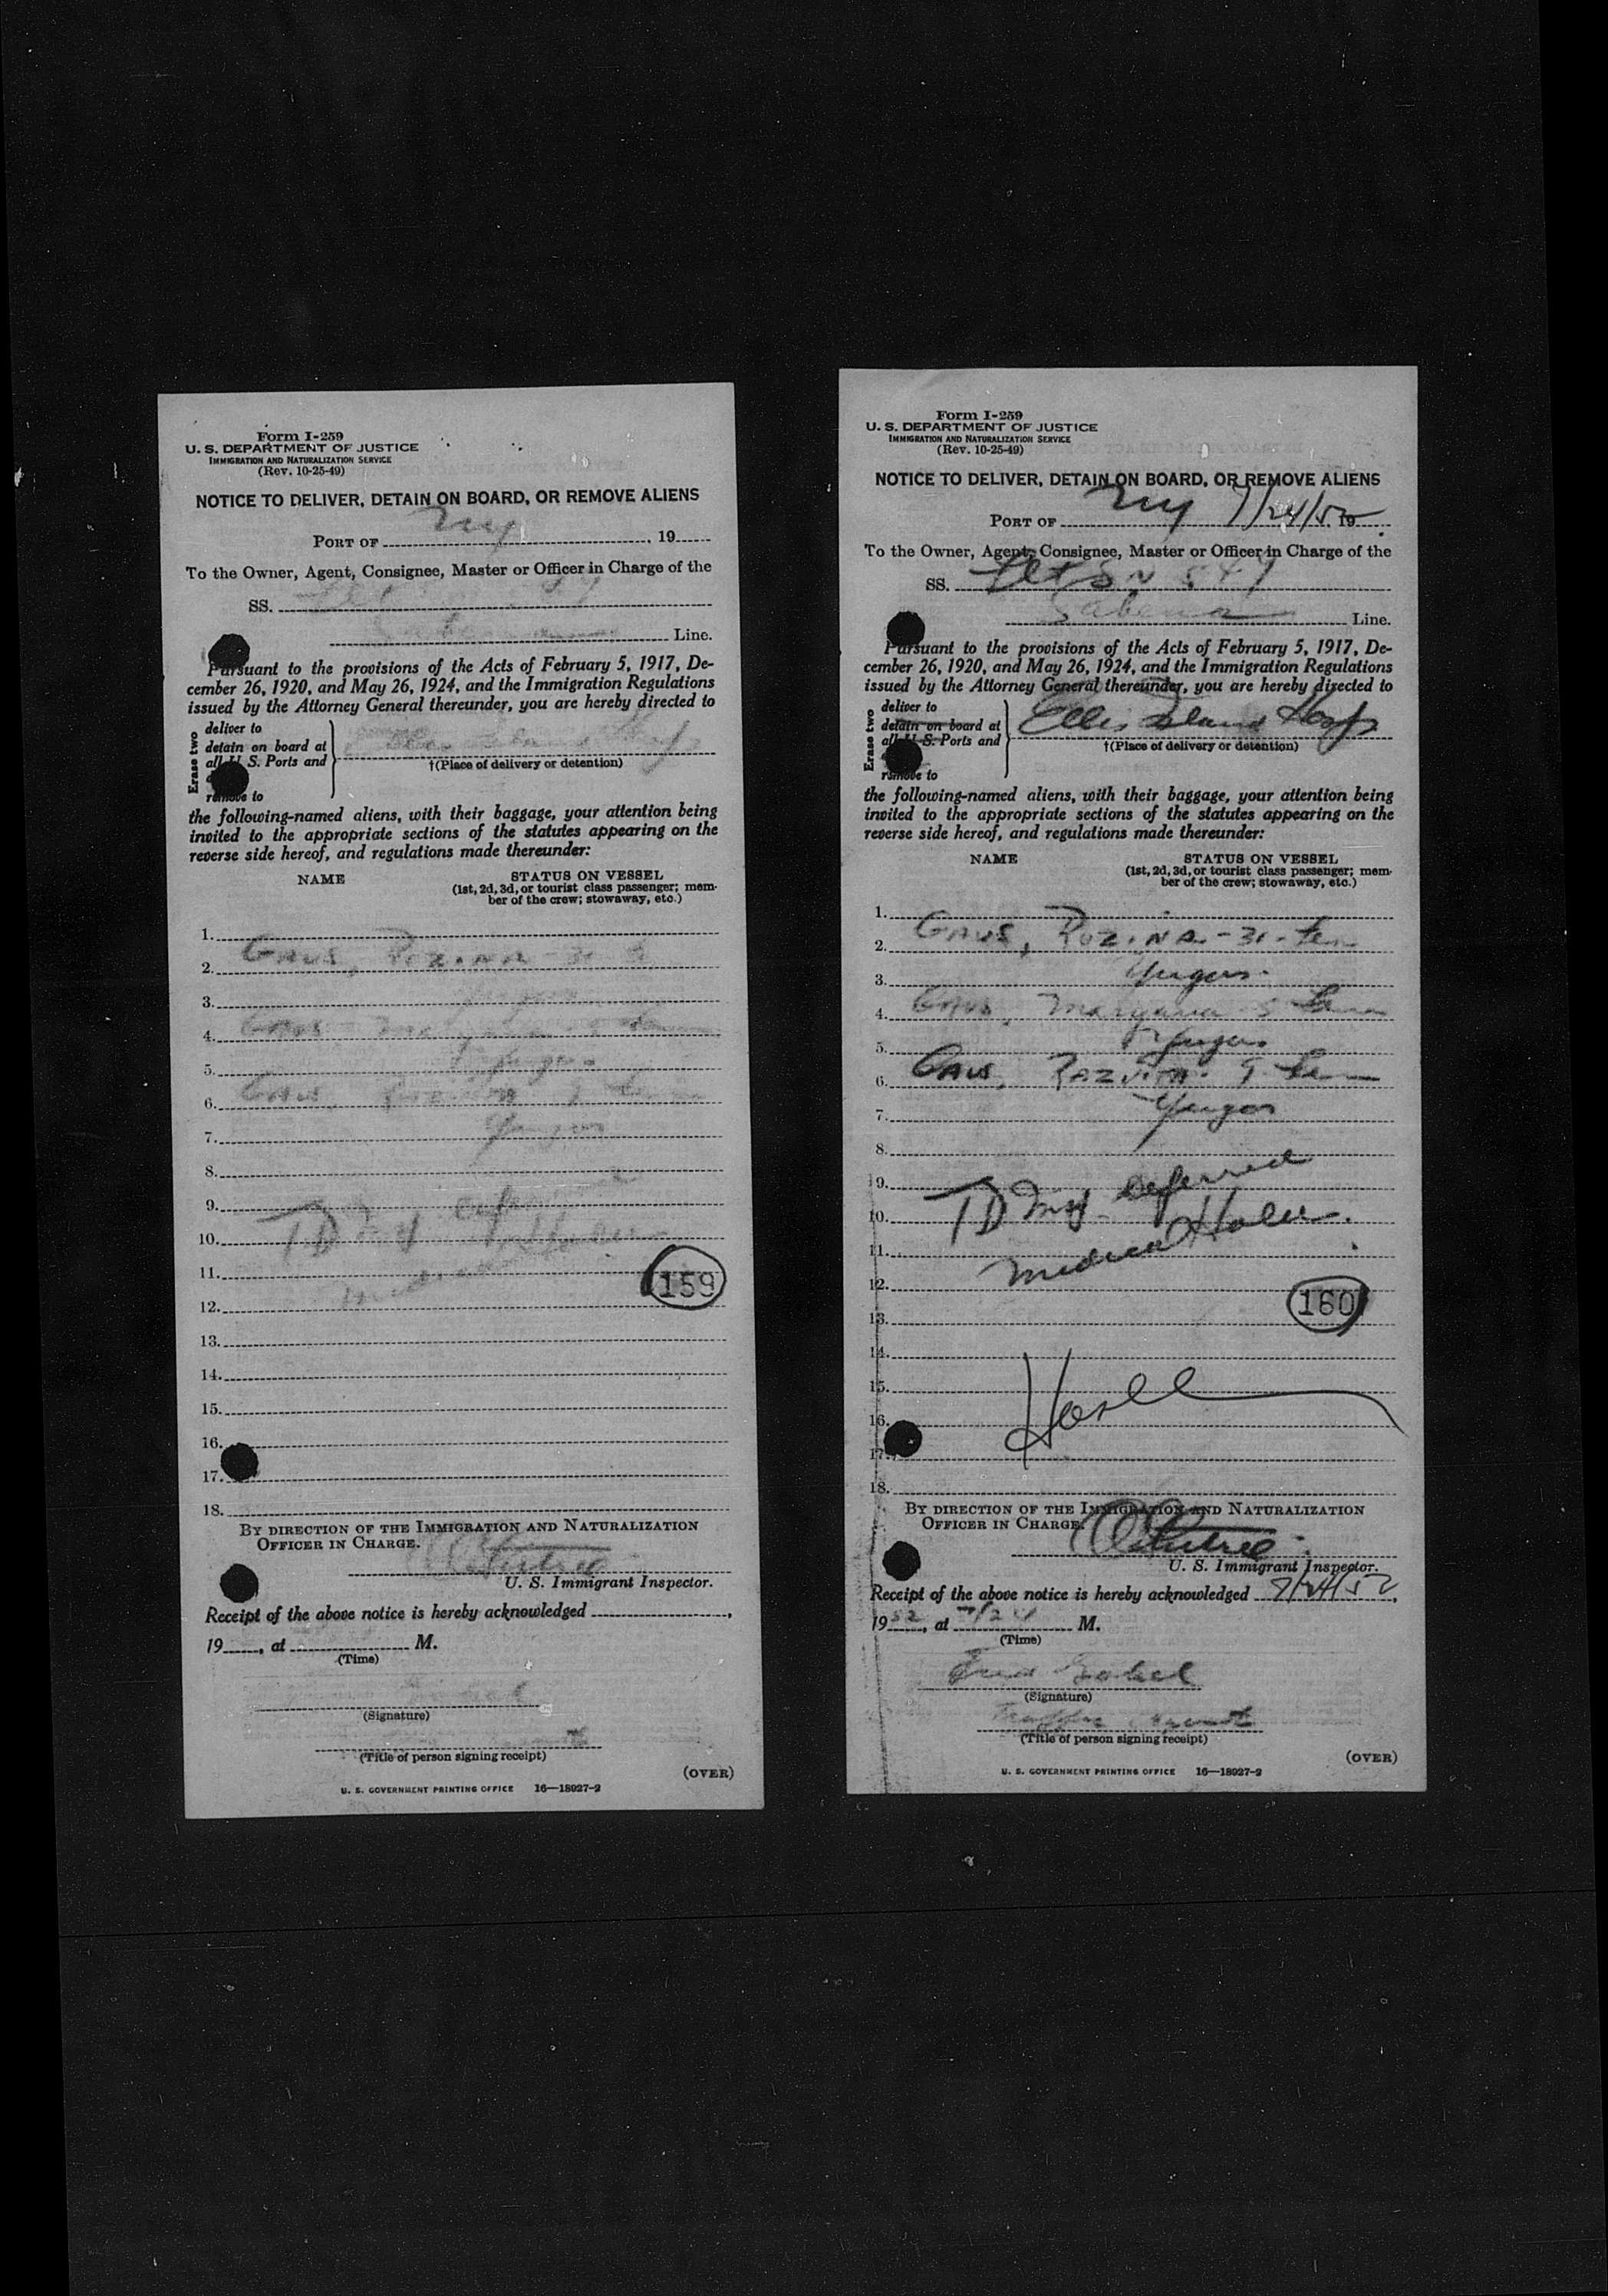 Form I-259
U. S. DEPARTMENT OF JUSTICE
IMMIGRATION AND NATURALIZATION SERVICE
(Rev. 10-25-49)
NOTICE TO DELIVER, DETAIN ON BOARD, OR REMOVE ALIENS
PORT OF NY, 19
To the Owner, Agent, Consignee, Master or Officer in Charge of the
SS.
Line.
Pursuant to the provisions of the Acts of February 5, 1917, De-
cember 26, 1920, and May 26, 1924, and the Immigration Regulations
issued by the Attorney General thereunder, you are hereby directed to
Erase two
deliver to
detain on board at
all U. S. Ports and
remove to
†(Place of delivery or detention)
the following-named aliens, with their baggage, your attention being
invited to the appropriate sections of the statutes appearing on the
reverse side hereof, and regulations made thereunder:
NAME STATUS ON VESSEL
(1st, 2d, 3d, or tourist class passenger; mem-
ber of the crew; stowaway, etc.)
1.
2. GAUS, ROZINA 31
3.
4. GAUS
5.
6. GAUS
7.
8.
9.
10. TD
11.
159
12.
13.
14.
15.
16.
17.
18.
BY DIRECTION OF THE IMMIGRATION AND NATURALIZATION
OFFICER IN CHARGE.
U. S. Immigrant Inspector.
Receipt of the above notice is hereby acknowledged ,
19 , at M.
(Time)
(Signature)
(Title of person signing receipt)
(OVER)
U. S. GOVERNMENT PRINTING OFFICE 16—18927-2
Form I-259
U. S. DEPARTMENT OF JUSTICE
IMMIGRATION AND NATURALIZATION SERVICE
(Rev. 10-25-49)
NOTICE TO DELIVER, DETAIN ON BOARD, OR REMOVE ALIENS
PORT OF NY 7/24/52 19
To the Owner, Agent, Consignee, Master or Officer in Charge of the
SS. Flt SN 547
Sabena Line.
Pursuant to the provisions of the Acts of February 5, 1917, De-
cember 26, 1920, and May 26, 1924, and the Immigration Regulations
issued by the Attorney General thereunder, you are hereby directed to
Erase two
deliver to
detain on board at
all U. S. Ports and
remove to
Ellis Island Hosp
†(Place of delivery or detention)
the following-named aliens, with their baggage, your attention being
invited to the appropriate sections of the statutes appearing on the
reverse side hereof, and regulations made thereunder:
NAME STATUS ON VESSEL
(1st, 2d, 3d, or tourist class passenger; mem-
ber of the crew; stowaway, etc.)
1.
2. GAUS, ROZINA - 31 - fem
3. Yugos.
4. GAUS, Maryana 5 fem
5. Yugos.
6. GAUS, 9 fem
7. Yugos
8.
9. deferred
10. TD
11. medical Hold.
12.
160
13.
14.
15.
16.
17.
18.
BY DIRECTION OF THE IMMIGRATION AND NATURALIZATION
OFFICER IN CHARGE.
U. S. Immigrant Inspector.
Receipt of the above notice is hereby acknowledged 7/24/52,
1952, at 7/24 M.
(Time)
(Signature)
Traffic Agent
(Title of person signing receipt)
(OVER)
U. S. GOVERNMENT PRINTING OFFICE 16—18927-2